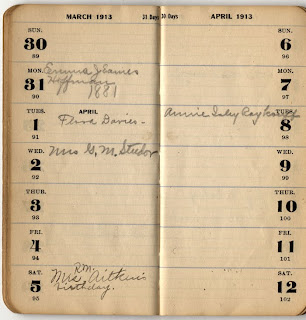 MARCH 1913
31 Days
SUN.
30
89
MON.
31
90
Emma James
Hoffman
1881
TUES.
APRIL
1
91
Flora Davies-
WED.
2
92
Mrs G. M.
THUR.
3
93
FRI.
4
94
SAT.
5
95
R.M.
Mrs. Aitken's
birthday.
30 Days
APRIL 1913
SUN.
6
96
MON.
7
97
TUES.
8
98
Annie
WED.
9
99
THUR.
10
100
FRI.
11
101
SAT.
12
102